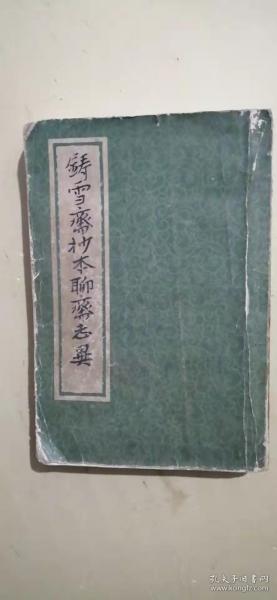 鋳雪齋抄本聊齋志異
孔夫子旧书网
www.kongfz.com